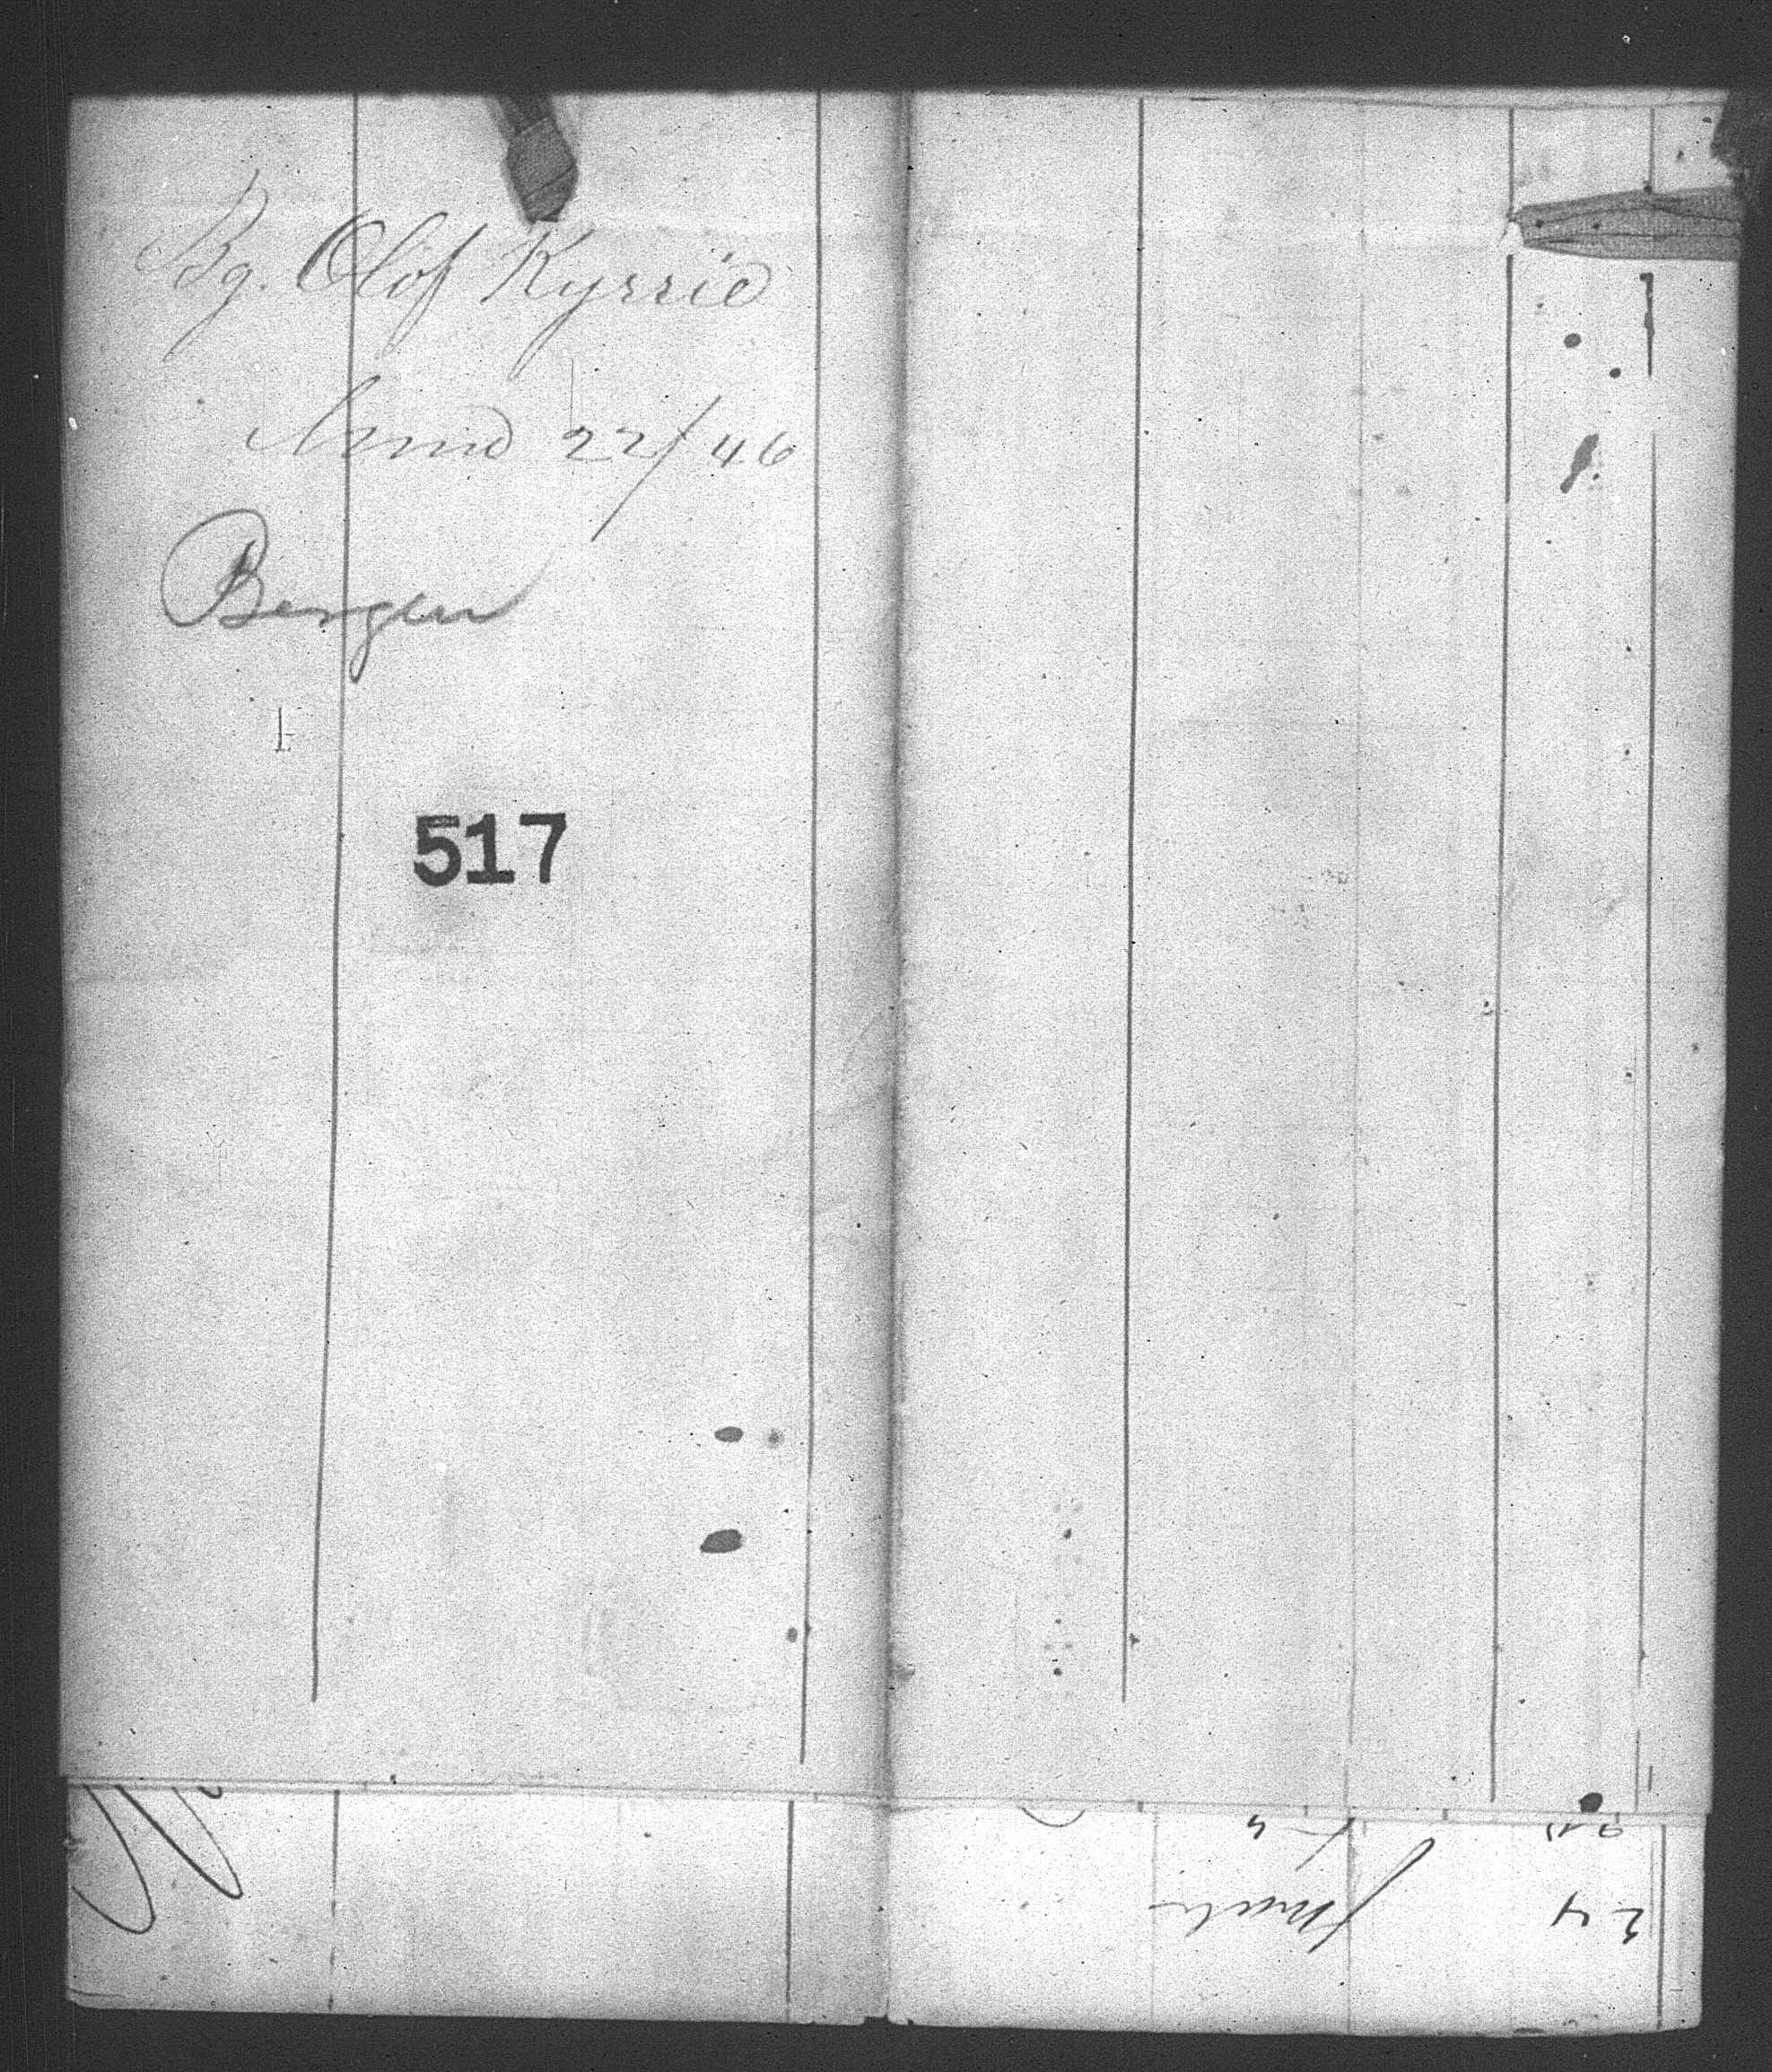 Bg. Olof Kyrrie
Anno 22/46
Bergen
517
24